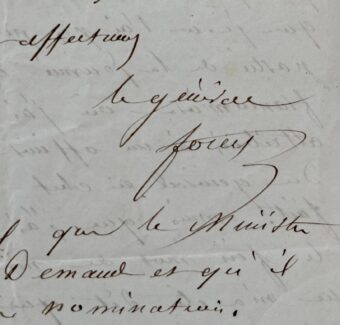 affectueux
le général
forey
que le Ministre
Demand et qu'il
nomination.